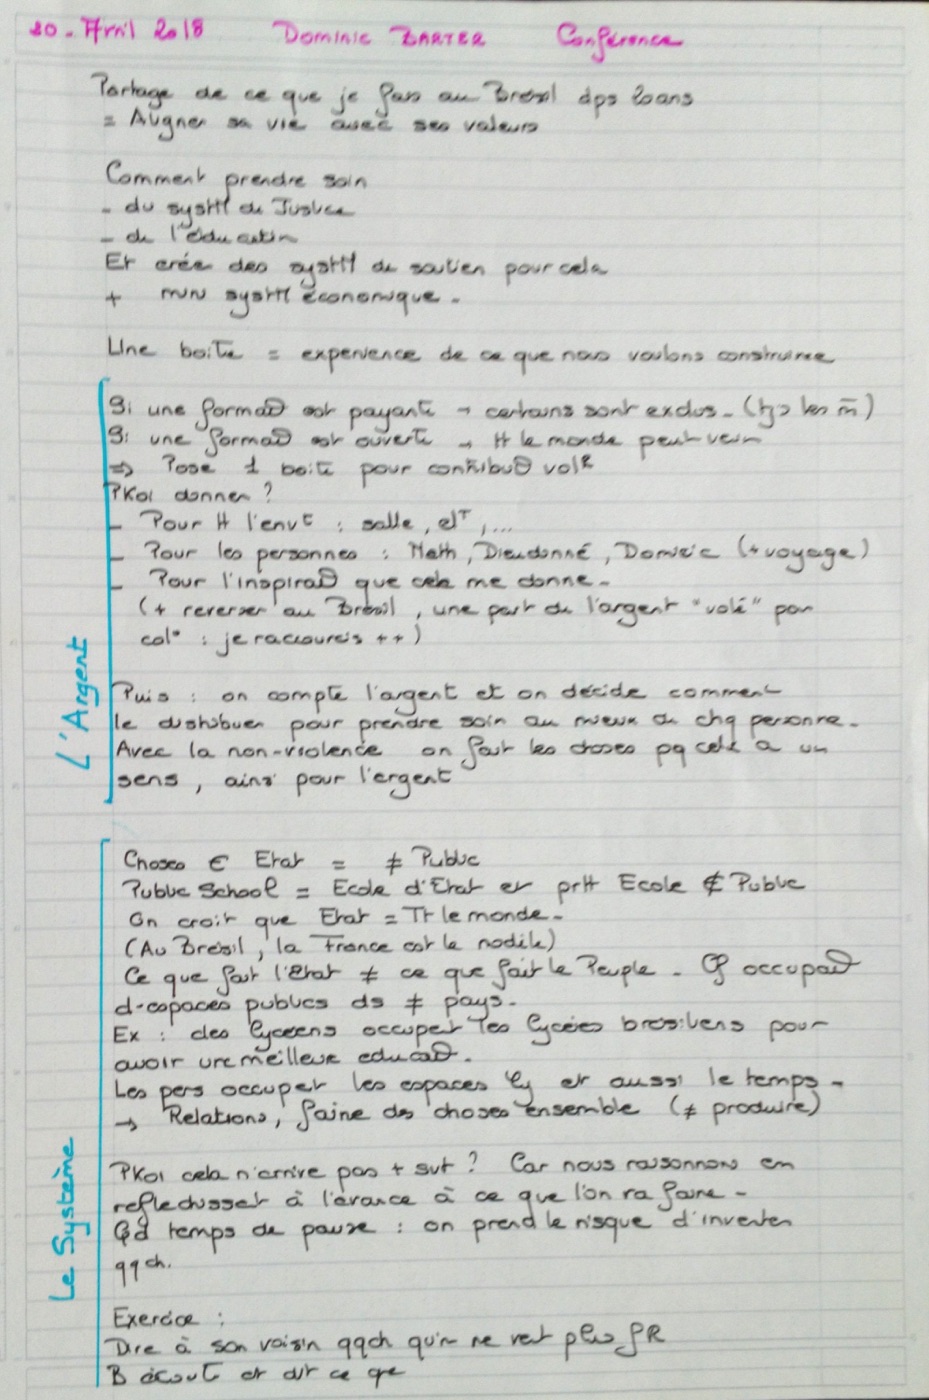 20. Avril 2018 Dominic BARTER Conférence
Partage de ce que je fais au Brésil dps 20 ans
= Aligner sa vie avec ses valeurs
Comment prendre soin
- du systM de Justice
- de l'éducation
Et créer des systM de soutien pour cela
+ mini systM économique.
Une boite = experience de ce que nous voulons construire
Si une formaᗡ est payante → certains sont exclus. (tjs les m̄)
Si une formaᗡ est ouverte → tt le monde peut venir
⇒ Pose 1 boite pour contribuᗡ volR
PKoi donner ?
- Pour tt l'envt : salle, elT, ...
- Pour les personnes : Math, Dieudonné, Dominic (+ voyage)
- Pour l'inspiraᗡ que cela me donne.
(+ reverser au Brésil, une part de l'argent "volé" par
col° : je raccourcis ++)
L'Argent
Puis : on compte l'argent et on décide comment
le distribuer pour prendre soin au mieux de chq personne.
Avec la non-violence on fait les choses pq cela a un
sens, ainsi pour l'argent
Choses ∈ Etat = ≠ Public
Public School = Ecole d'Etat et prtt Ecole ∉ Public
On croit que Etat = Tt le monde.
(Au Brésil, la France est le modèle)
Ce que fait l'Etat ≠ ce que fait le Peuple. Cf occupaᗡ
d-espaces publics ds ≠ pays.
Ex : des lycéens occupent les lycées brésiliens pour
avoir une meilleure educaᗡ.
Les pers occupent les espaces et aussi le temps.
→ Relations, faire des choses ensemble (≠ produire)
Le Système
PKoi cela n'arrive pas + svt ? Car nous raisonnons en
reflechissant à l'avance à ce que l'on va faire.
Qd temps de pause : on prend le risque d'inventer
qqch.
Exercice :
Dire à son voisin qqch qu'on ne veut plus fR
B écoute et dit ce qe